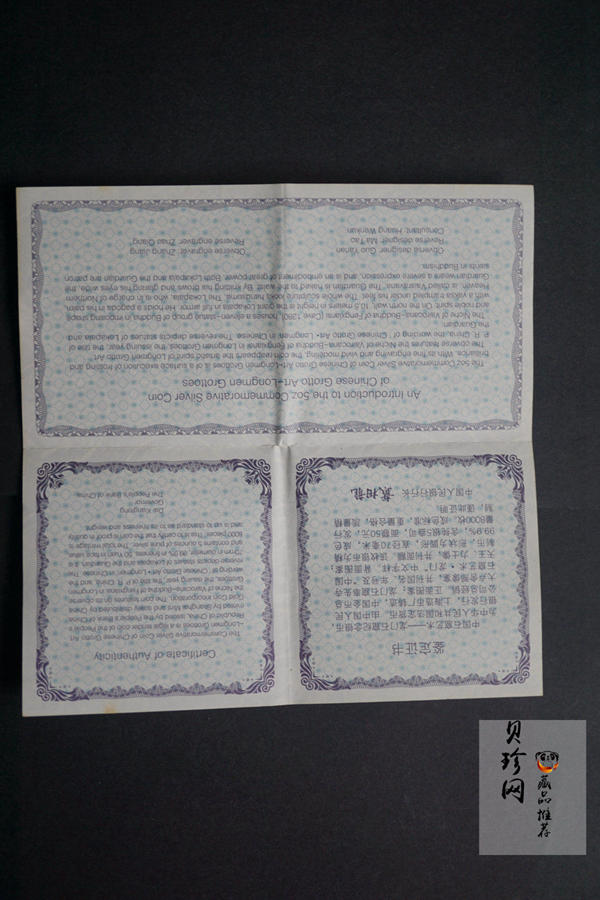 鉴定证书
中国石窟艺术——龙门石窟纪念银币,
为中华人民共和国法定货币,由中国人民
银行发行,上海造币厂铸造,中国金币总
公司总经销。正面图案:龙门石窟奉先寺
大卢舍那像龛,并刊国名、年号及“中国
石窟艺术·龙门”中文字样。背面图案:
天王、力士像,并刊面额。该枚银币为精
制币,呈冰为圆形,直径70毫米,成色
99.9%,含纯银5盎司,面额50元,发行
量8000枚。成色标准,重量合格,质量精
制,谨此证明
中国人民银行行长 戴相龙
Certificate of Authenticity
The Commemorative Silver Coin of Chinese Grotto Art-
Longmen Grottoes is a legal tender coin of the People's
Republic of China, issued by the People's Bank of China,
minted by Shanghai Mint and solely distributed by China
Gold Coin Incorporation. The coin features on its obverse
the Niche of Vairocana-Buddha of Fengxiansi in Longmen
Grottoes, the issuing year, the title of P. R. China, and the
wording of "Chinese Grotto Art • Longmen" in Chinese. The
reverse depicts statues of Lokapala and the Guardian. It is
70mm in diameter, 99.9% in fineness, 50 Yuan in face value
and contains 5 ounces of pure silver. The total mintage is
8000 pieces. This is to certify that the coin is proof in quality
and is up to standard as to its fineness and weight.
Dai Xianglong
Governor
The People's Bank of China
An Introduction to the 5oz Commemorative Silver Coin
of Chinese Grotto Art–Longmen Grottoes
The 5oz Commemorative Silver Coin of Chinese Grotto Art-Longmen Grottoes is of a subtle execution of frosting and
brilliantias. With its fine engraving and vivid modelling, the coin reappears the artistic splendor of Longmen Grotto Art.
The obverse features the Niche of Vairocana–Buddha of Fengxiansi in Longmen Grottoes, the issuing year, the title of
P. R. China, the wording of " Chinese Grotto Art • Longmen" in Chinese. The reverse depicts statues of Lokapala and
the Guardian.
The Niche of Vairocana-Buddha of Fengxiansi (Cave 1280), houses a eleven-statue group of Buddha, in imposing shape
and noble spirit. On the north wall, 10.5 meters in height is the giant Lokapala in full armor. He holds a pagoda in his palm,
with a yaksa trampled under his feet. The whole sculpture looks handsome. The Lokapala, who is in charge of Northern
Heaven, is called Vaisravana. The Guardian is naked at the waist. By knitting his brows and staring his eyes wide, the
Guardian wears a severe expression, and is an embodiment of great power. Both Lokapala and the Guardian are patron
saints in Buddhism.
Obverse designer: Guo Yanan Obverse engraver: Zhang Jiang
Reverse designer: Ma Tao Reverse engraver: Zhao Qiang
Consultant: Huang Wenkun
贝珍网
藏品推荐